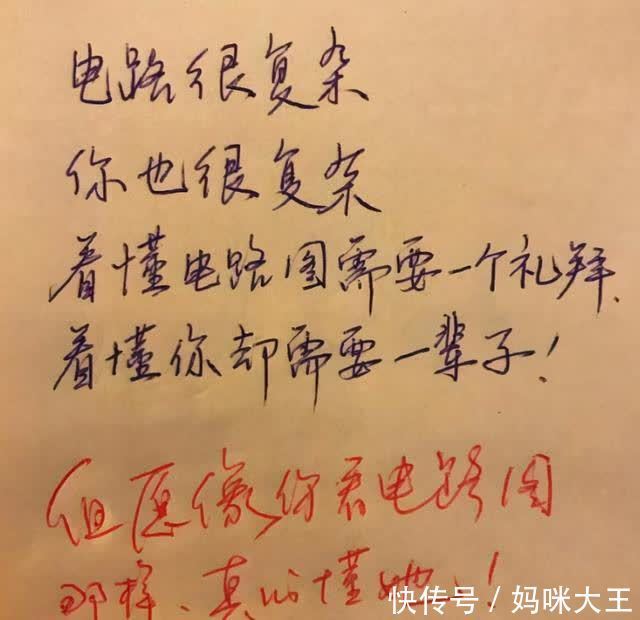 电路很复杂
你也很复杂
看懂电路图需要一个礼拜、
看懂你却需要一辈子!
但愿像你看电路图
那样、真心懂她!
快传号/妈咪大王